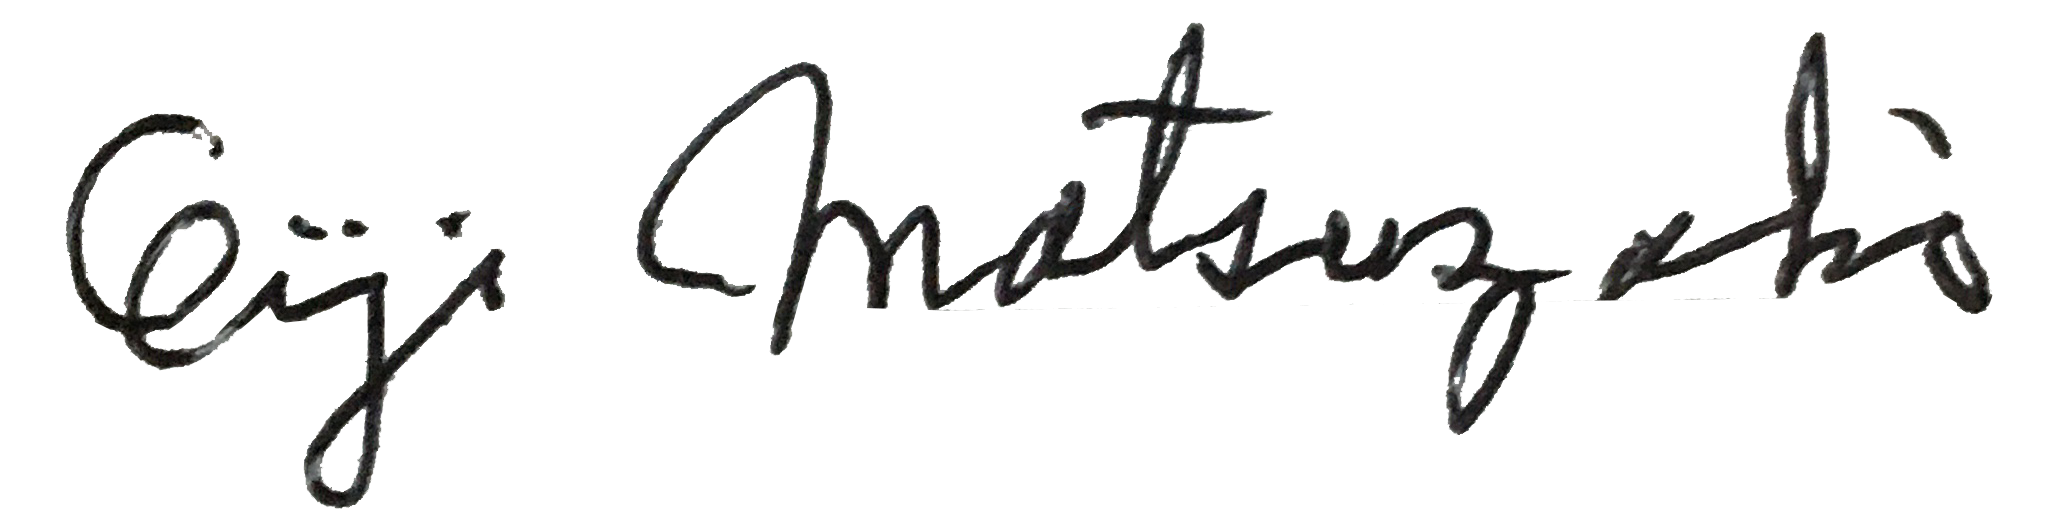 Eiji Matsuzaki